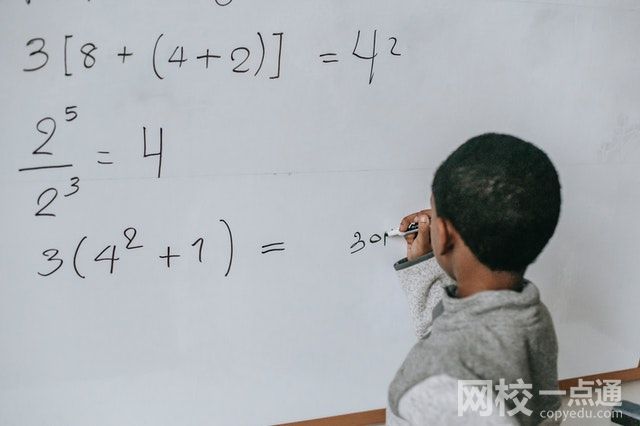 3[8+(4+2)] = 4²
2⁵/2³ = 4
3(4²+1) = 30
网校一点通
copyedu.com